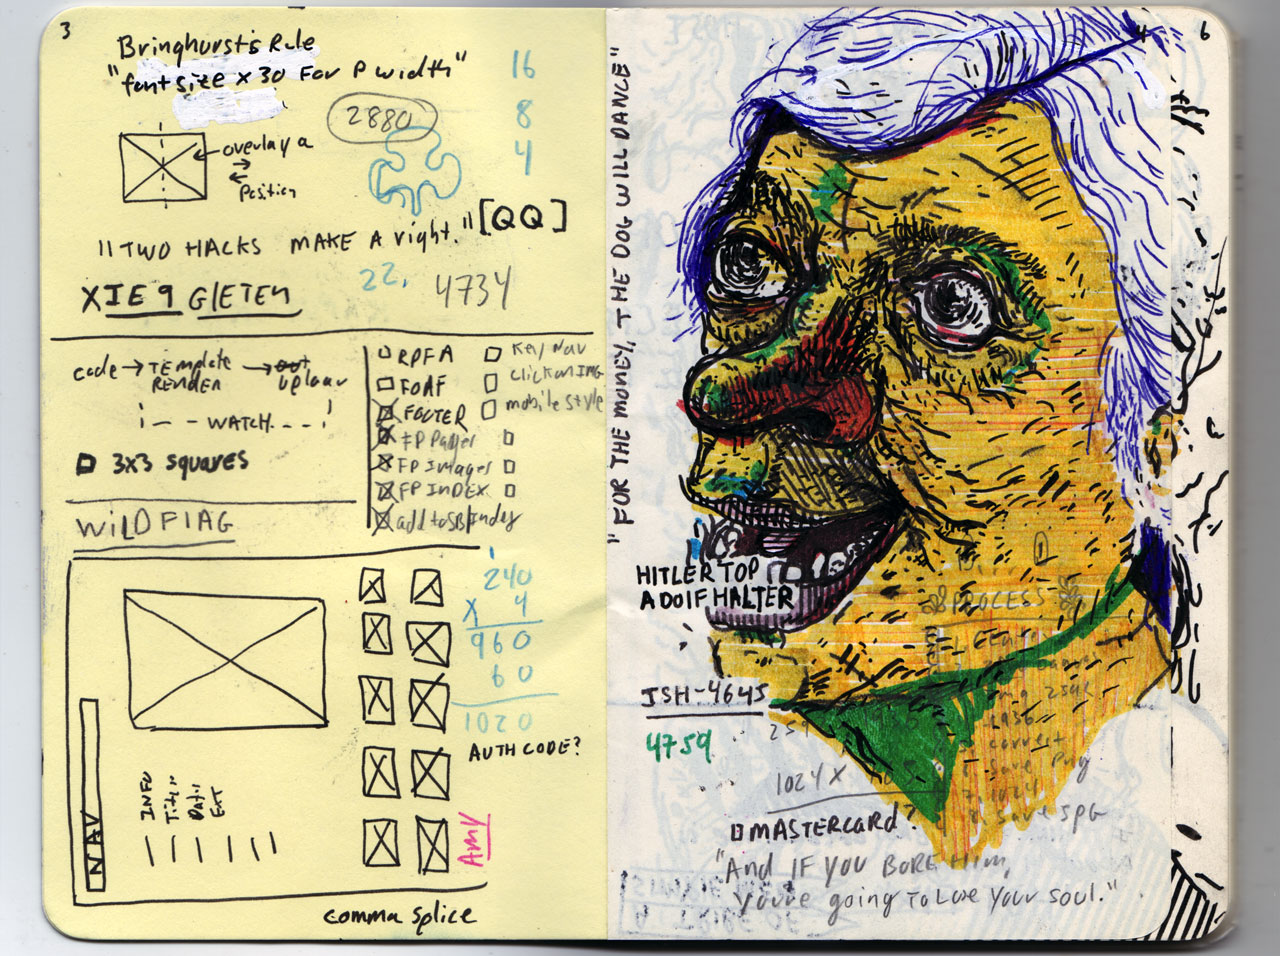 3
Bringhurst's Rule
"font size x 30 For P width"
2880
16
8
4
overlay a
Position
"TWO HACKS MAKE A right."
[QQ]
22.
4734
XIE9 G/ETEN
code → TEMPlate → out
RENDER upload
¦ - - WATCH - - - ¦
3x3 squares
WILDFLAG
RDFA
FOAF
FOOTER
FP Pager
FP Images
FP INDEX
add to SB/ender
Key/Nav
click on IMG
mobile style
240
x 4
960
60
1020
AUTH CODE?
NAV
INFO
Title
Date
EXT
AMY
comma splice
6
"FOR THE MONEY, THE DOG WILL DANCE"
HITLER TOP
ADOLF HALTER
JSH-4645
4759
259
1
PROCESS
1024 x
correct
save png
1024
save jpg
MASTERCARD?
"And IF YOU BORE Him,
You're going To Lose Your Soul."